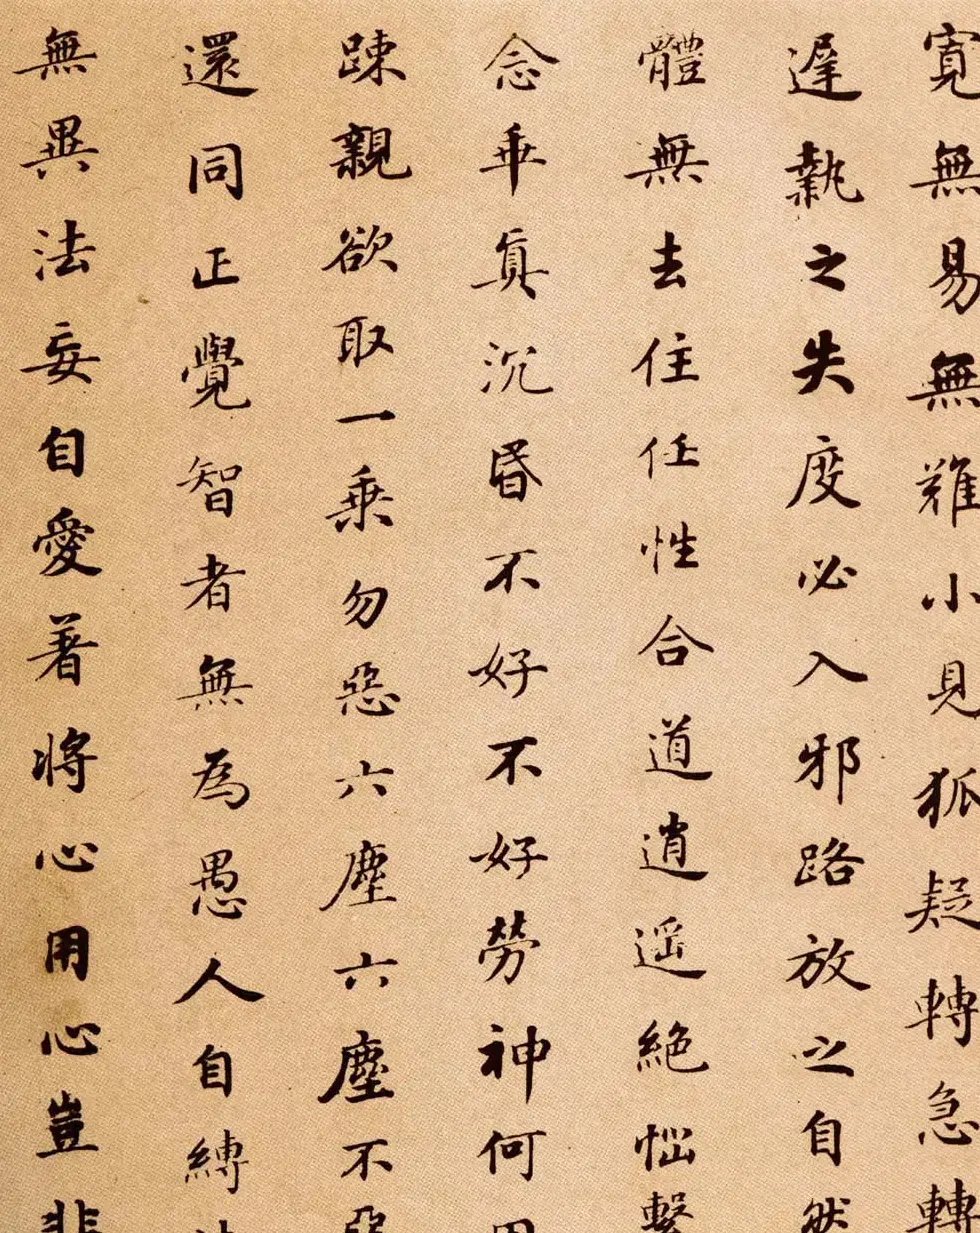 寬無易無難小見狐疑轉急轉
遲執之失度必入邪路放之自然
體無去住任性合道逍遥絕惱繫
念乖真沉昏不好不好勞神何用
踈親欲取一乗勿惡六塵六塵不惡
還同正覺智者無為愚人自縛法
無異法妄自愛著將心用心豈非